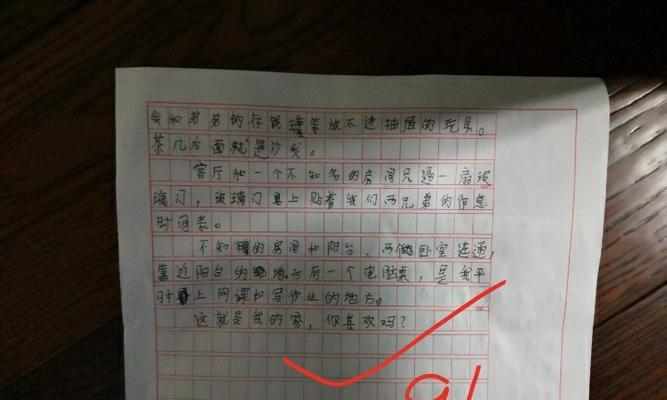 我和弟弟的存钱罐等放不进抽屉的玩具。
茶几后面就是沙发。
客厅和一个不知名的房间只隔一扇玻
璃门，玻璃门上贴着我们两兄弟的作息
时间表。
不知名的房间和阳台、两间卧室连通，
靠近阳台的地方有一个电脑桌，是我平
时上网课和写作业的地方。
这就是我的客，你喜欢吗？